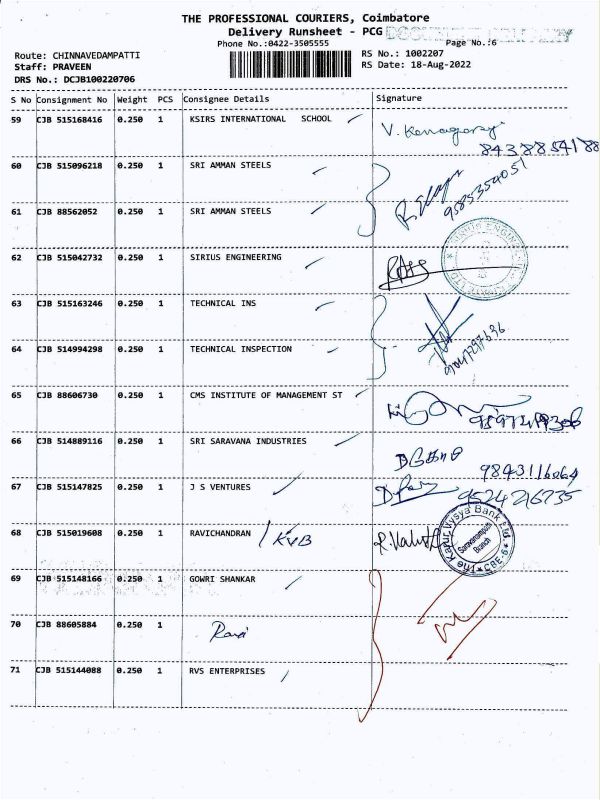 THE PROFESSIONAL COURIERS, Coimbatore
Delivery Runsheet - PCG
Phone No.:0422-3505555
Page No.:6
Route: CHINNAVEDAMPATTI
RS No.: 1002207
Staff: PRAVEEN
RS Date: 18-Aug-2022
DRS No.: DCJB100220706
S No Consignment No Weight PCS Consignee Details Signature
59 CJB 515168416 0.250 1 KSIRS INTERNATIONAL SCHOOL
60 CJB 515096218 0.250 1 SRI AMMAN STEELS
9585354051
61 CJB 88562052 0.250 1 SRI AMMAN STEELS
62 CJB 515042732 0.250 1 SIRIUS ENGINEERING
63 CJB 515163246 0.250 1 TECHNICAL INS
64 CJB 514994298 0.250 1 TECHNICAL INSPECTION
65 CJB 88606730 0.250 1 CMS INSTITUTE OF MANAGEMENT ST
66 CJB 514889116 0.250 1 SRI SARAVANA INDUSTRIES
9843116064
67 CJB 515147825 0.250 1 J S VENTURES
9524216735
68 CJB 515019608 0.250 1 RAVICHANDRAN / KVB
The Karur Vysya Bank Ltd. CBE-6
Saravanampatti Branch
69 CJB 515148166 0.250 1 GOWRI SHANKAR
70 CJB 88605884 0.250 1 Ravi
71 CJB 515144088 0.250 1 RVS ENTERPRISES